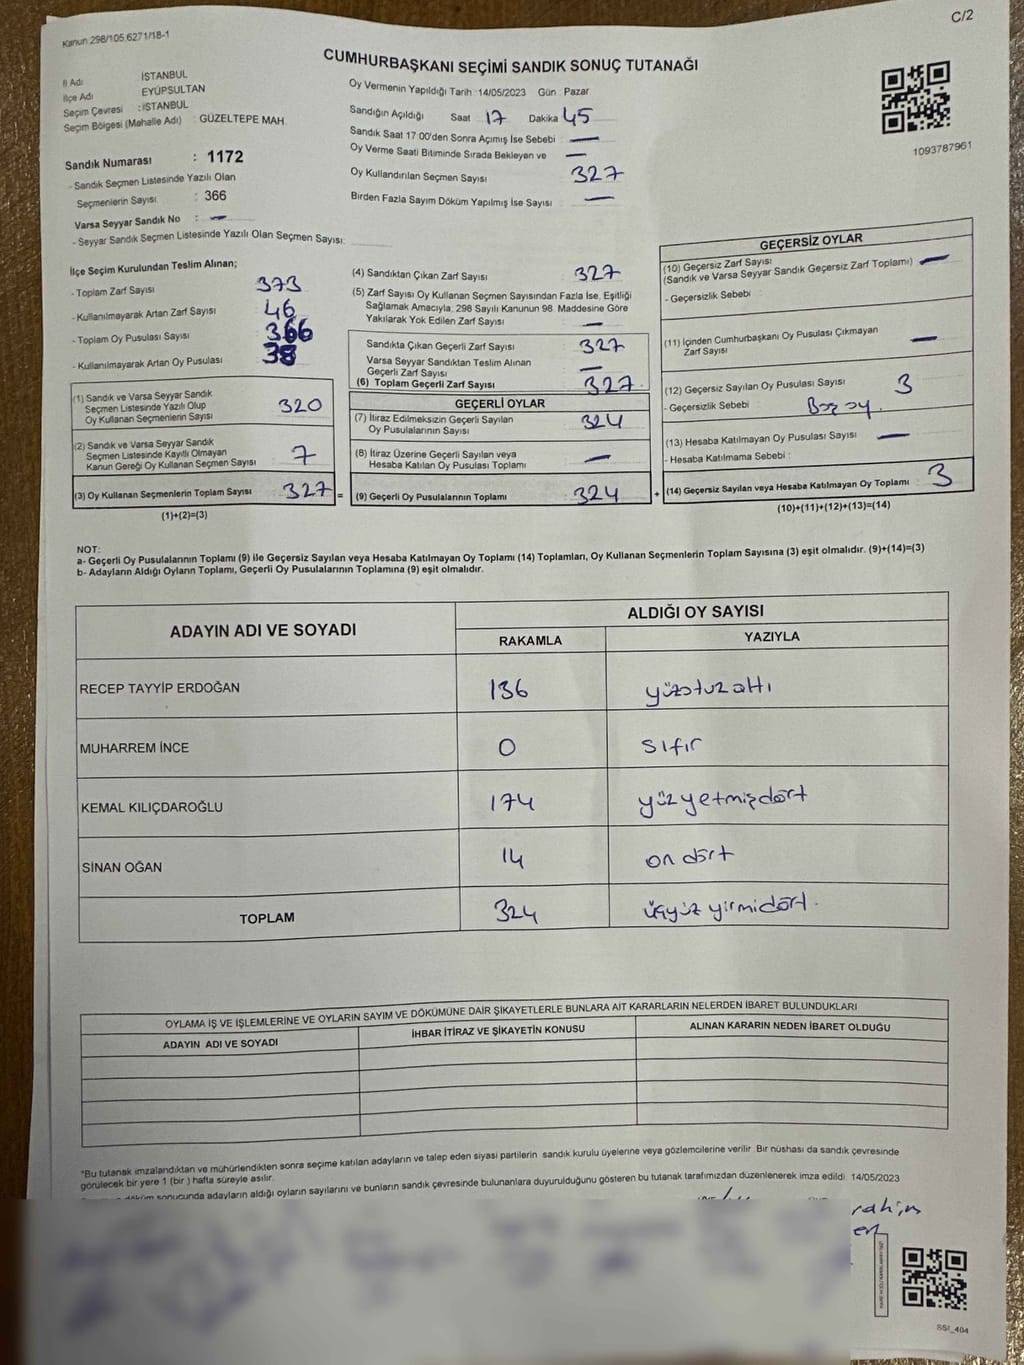 C/2
Kanun:298/105,6271/18-1
CUMHURBAŞKANI SEÇİMİ SANDIK SONUÇ TUTANAĞI
İl Adı : İSTANBUL
İlçe Adı EYÜPSULTAN
Seçim Çevresi : İSTANBUL
Seçim Bölgesi (Mahalle Adı) : GÜZELTEPE MAH.
Sandık Numarası : 1172
- Sandık Seçmen Listesinde Yazılı Olan
Seçmenlerin Sayısı : 366
Varsa Seyyar Sandık No : —
- Seyyar Sandık Seçmen Listesinde Yazılı Olan Seçmen Sayısı:
Oy Vermenin Yapıldığı Tarih :14/05/2023 Gün : Pazar
Sandığın Açıldığı Saat 17 Dakika 45
Sandık Saat 17:00'den Sonra Açımış İse Sebebi : —
Oy Verme Saati Bitiminde Sırada Bekleyen ve —
Oy Kullandırılan Seçmen Sayısı : 327
Birden Fazla Sayım Döküm Yapılmış İse Sayısı : —
1093787961
İlçe Seçim Kurulundan Teslim Alınan;
- Toplam Zarf Sayısı : 373
- Kullanılmayarak Artan Zarf Sayısı : 46
- Toplam Oy Pusulası Sayısı : 366
- Kullanılmayarak Artan Oy Pusulası : 38
(1) Sandık ve Varsa Seyyar Sandık
Seçmen Listesinde Yazılı Olup
Oy Kullanan Seçmenlerin Sayısı : 320
(2) Sandık ve Varsa Seyyar Sandık
Seçmen Listesinde Kayıtlı Olmayan
Kanun Gereği Oy Kullanan Seçmen Sayısı : 7
(3) Oy Kullanan Seçmenlerin Toplam Sayısı : 327 =
(1)+(2)=(3)
(4) Sandıktan Çıkan Zarf Sayısı : 327
(5) Zarf Sayısı Oy Kullanan Seçmen Sayısından Fazla İse, Eşitliği
Sağlamak Amacıyla, 298 Sayılı Kanunun 98. Maddesine Göre
Yakılarak Yok Edilen Zarf Sayısı : —
Sandıkta Çıkan Geçerli Zarf Sayısı : 327
Varsa Seyyar Sandıktan Teslim Alınan
Geçerli Zarf Sayısı : —
(6) Toplam Geçerli Zarf Sayısı : 327
GEÇERLİ OYLAR
(7) İtiraz Edilmeksizin Geçerli Sayılan
Oy Pusulalarının Sayısı : 324
(8) İtiraz Üzerine Geçerli Sayılan veya
Hesaba Katılan Oy Pusulası Toplamı : —
(9) Geçerli Oy Pusulalarının Toplamı : 324 +
GEÇERSİZ OYLAR
(10) Geçersiz Zarf Sayısı
(Sandık ve Varsa Seyyar Sandık Geçersiz Zarf Toplamı) : —
- Geçersizlik Sebebi :
(11) İçinden Cumhurbaşkanı Oy Pusulası Çıkmayan
Zarf Sayısı : —
(12) Geçersiz Sayılan Oy Pusulası Sayısı : 3
- Geçersizlik Sebebi :
(13) Hesaba Katılmayan Oy Pusulası Sayısı : —
- Hesaba Katılmama Sebebi :
(14) Geçersiz Sayılan veya Hesaba Katılmayan Oy Toplamı : 3
(10)+(11)+(12)+(13)=(14)
NOT:
a- Geçerli Oy Pusulalarının Toplamı (9) ile Geçersiz Sayılan veya Hesaba Katılmayan Oy Toplamı (14) Toplamları, Oy Kullanan Seçmenlerin Toplam Sayısına (3) eşit olmalıdır. (9)+(14)=(3)
b- Adayların Aldığı Oyların Toplamı, Geçerli Oy Pusulalarının Toplamına (9) eşit olmalıdır.
ADAYIN ADI VE SOYADI ALDIĞI OY SAYISI
RAKAMLA YAZIYLA
RECEP TAYYİP ERDOĞAN 136 yüzotuzaltı
MUHARREM İNCE 0 sıfır
KEMAL KILIÇDAROĞLU 174 yüzyetmişdört
SİNAN OĞAN 14 on dört
TOPLAM 324 üçyüz yirmidört.
OYLAMA İŞ VE İŞLEMLERİNE VE OYLARIN SAYIM VE DÖKÜMÜNE DAİR ŞİKAYETLERLE BUNLARA AİT KARARLARIN NELERDEN İBARET BULUNDUKLARI
ADAYIN ADI VE SOYADI İHBAR İTİRAZ VE ŞİKAYETİN KONUSU ALINAN KARARIN NEDEN İBARET OLDUĞU
"Bu tutanak imzalandıktan ve mühürlendikten sonra seçime katılan adayların ve talep eden siyasi partilerin sandık kurulu üyelerine veya gözlemcilerine verilir. Bir nüshası da sandık çevresinde
görülecek bir yere 1 (bir ) hafta süreyle asılır.
döküm sonucunda adayların aldığı oyların sayılarını ve bunların sandık çevresinde bulunanlara duyurulduğunu gösteren bu tutanak tarafımızdan düzenlenerek imza edildi. 14/05/2023
SSI_404